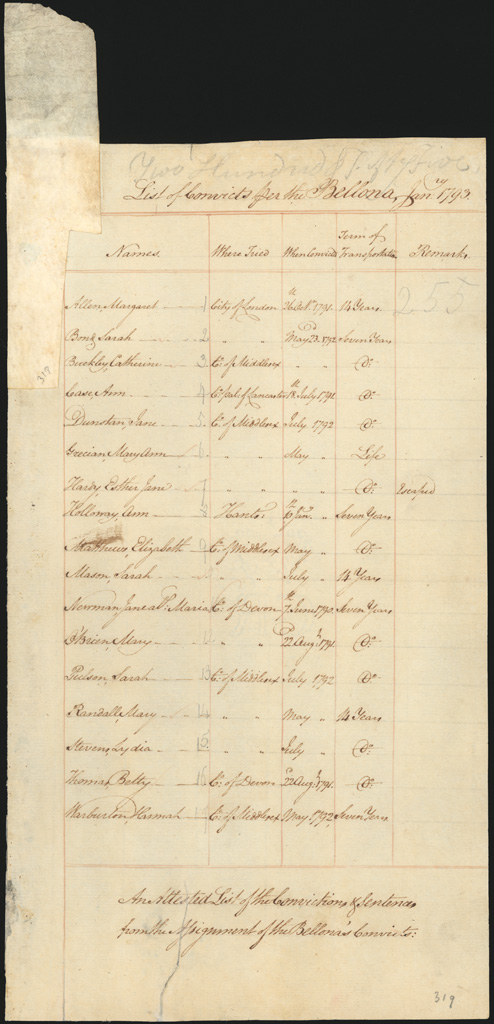 Two Hundred & fifty Five
List of Convicts per the Bellona, Jan.ry 1793.
Names. Where Tried When Convicted Term of Transportation Remarks
255
Allen, Margaret 1 City of London 26th Oct.r 1791. 14 Years
Bond, Sarah 2 " " May 23d. 1792 Seven Years
Buckley, Catherine 3 C.o of Middlesex " " D.o
Case, Ann 4 Lancaster 18th July 1791. D.o
Dunstan, Jane 5 C.o of Middlesex July 1792 D.o
Grecian, Mary Ann 6 " " May " Life
Hardy, Esther Jane 7 " " " " D.o Escaped
Holloway, Ann 8 Hants: 6th Jan.y " Seven Years
Matthews, Elizabeth 9 C.o of Middlesex May " D.o
Mason, Sarah " " July " 14 Years
Newman, Jane a.s Maria C.o of Devon 7th June 1790. Seven Years
O'Brien, Mary " " 22d Aug.t 1791. D.o
Pielson, Sarah 13 C.o of Middlesex July 1792 D.o
Randall, Mary 14 " " May " 14 Years
Stevens, Lydia 15 " " July " D.o
Thomas, Betty 16 C.o of Devon 22d Aug.t 1791. D.o
Warburton, Hannah C.o of Middlesex May 1792, Seven Years
An Attested List of the Convictions & Sentences
from the Assignment of the Bellona's Convicts:
317
319